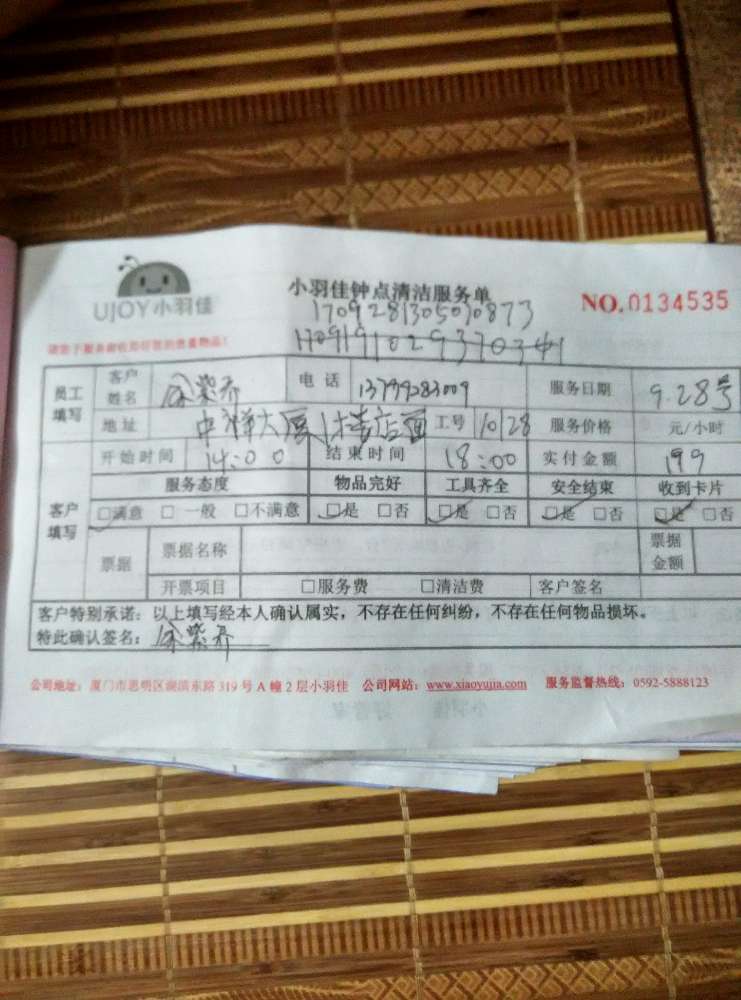 UJOY小羽佳
小羽佳钟点清洁服务单
NO.0134535
1709281305010873
请您于服务前收好您的贵重物品!
员工填写 客户姓名 电话 13799283009 服务日期 9.28号
地址 中祥大厦1楼店面 工号 1028 服务价格 元/小时
开始时间 14:00 结束时间 18:00 实付金额 199
客户填写 服务态度 物品完好 工具齐全 安全结束 收到卡片
□满意 □一般 □不满意 □是 □否 □是 □否 □是 □否 □是 □否
票据 票据名称 票据金额
开票项目 □服务费 □清洁费 客户签名
客户特别承诺:以上填写经本人确认属实,不存在任何纠纷,不存在任何物品损坏。
特此确认签名:
公司地址:厦门市思明区湖滨东路 319 号 A 幢 2 层小羽佳 公司网站:www.xiaoyujia.com 服务监督热线:0592-5888123